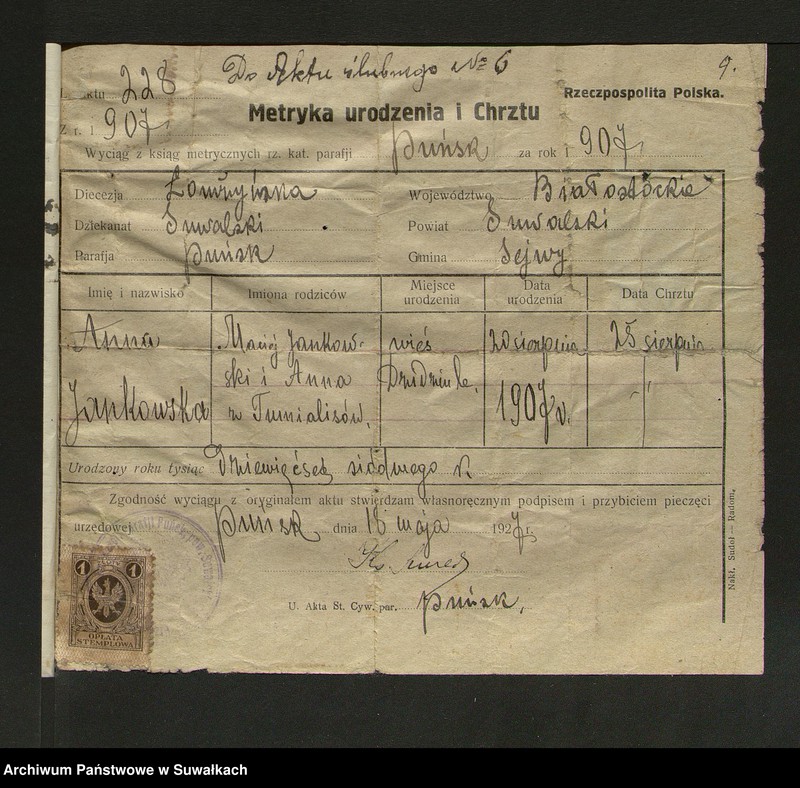 Do Aktu ślubnego № 6
9.
L. aktu 228
Rzeczpospolita Polska.
Z r. 1907
Metryka urodzenia i Chrztu
Wyciąg z ksiąg metrycznych rz. kat. parafji Puńsk za rok 1907
Diecezja Łomżyńska Województwo Białostockie
Dziekanat Suwalski Powiat Suwalski
Parafja Puńsk Gmina Sejwy
Imię i nazwisko Imiona rodziców Miejsce urodzenia Data urodzenia Data Chrztu
Anna Maciej Jankow- wieś 20 sierpnia 25 sierpnia
Jankowska ski i Anna 1907 r. -||-
z Tumialisów.
Urodzony roku tysiąc Dziewięćset siódmego r.
Zgodność wyciągu z oryginałem aktu stwierdzam własnoręcznym podpisem i przybiciem pieczęci
urzędowej Puńsk dnia 18 maja 1927 r.
Ks.
U. Akta St. Cyw. par. Puńsk.
1 1
OPŁATA
STEMPLOWA
Nakł. Sudoł — Radom.
Archiwum Państwowe w Suwałkach